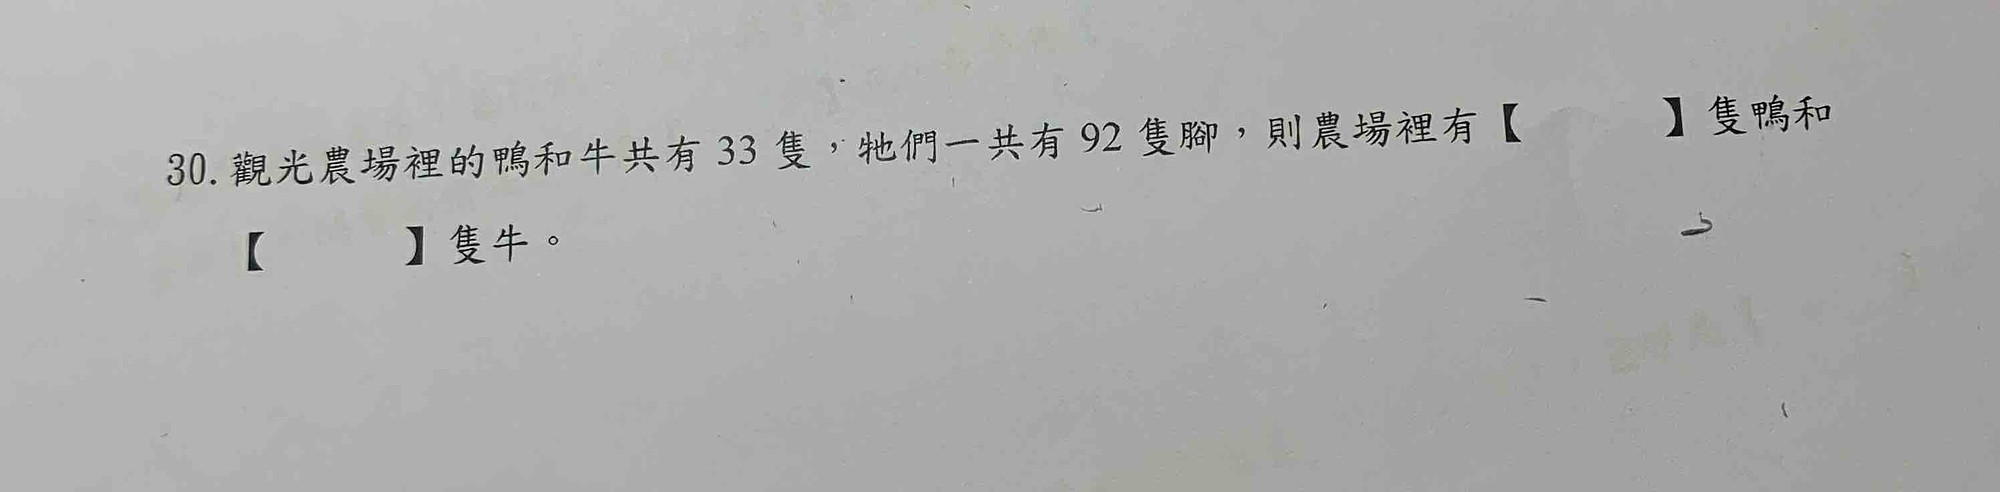 30. 觀光農場裡的鴨和牛共有 33 隻，牠們一共有 92 隻腳，則農場裡有【　　　】隻鴨和
【　　　】隻牛。